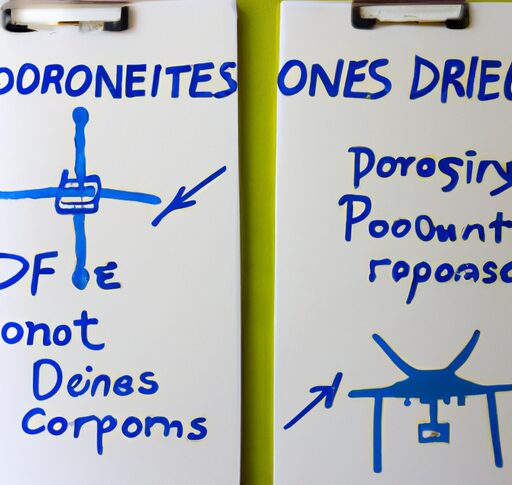 DORONEITES
DF e
onot
Deines
Corpoms
ONES DRIEC
Porosiny
PooOunt
ropoaso